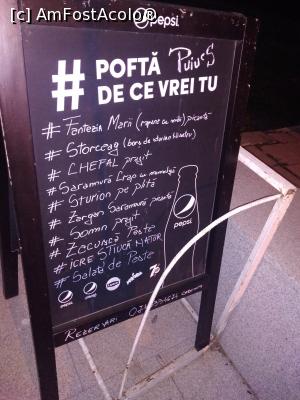 [c] AmFostAcolo®
pepsi
Puiu's
# POFTĂ
DE CE VREI TU
# Fantezia Mării (rapane cu midii) picantă
# Storceag (borș de sturion
# CHEFAL prăjit
# Saramură Crap cu mămăligă
# Sturion pe plită
# Zargan Saramură picantă
# Somn prăjit
# Zacuscă Pește
# ICRE ȘTIUCĂ MATUR
# Salată de Pește
pepsi
REZERVĂRI